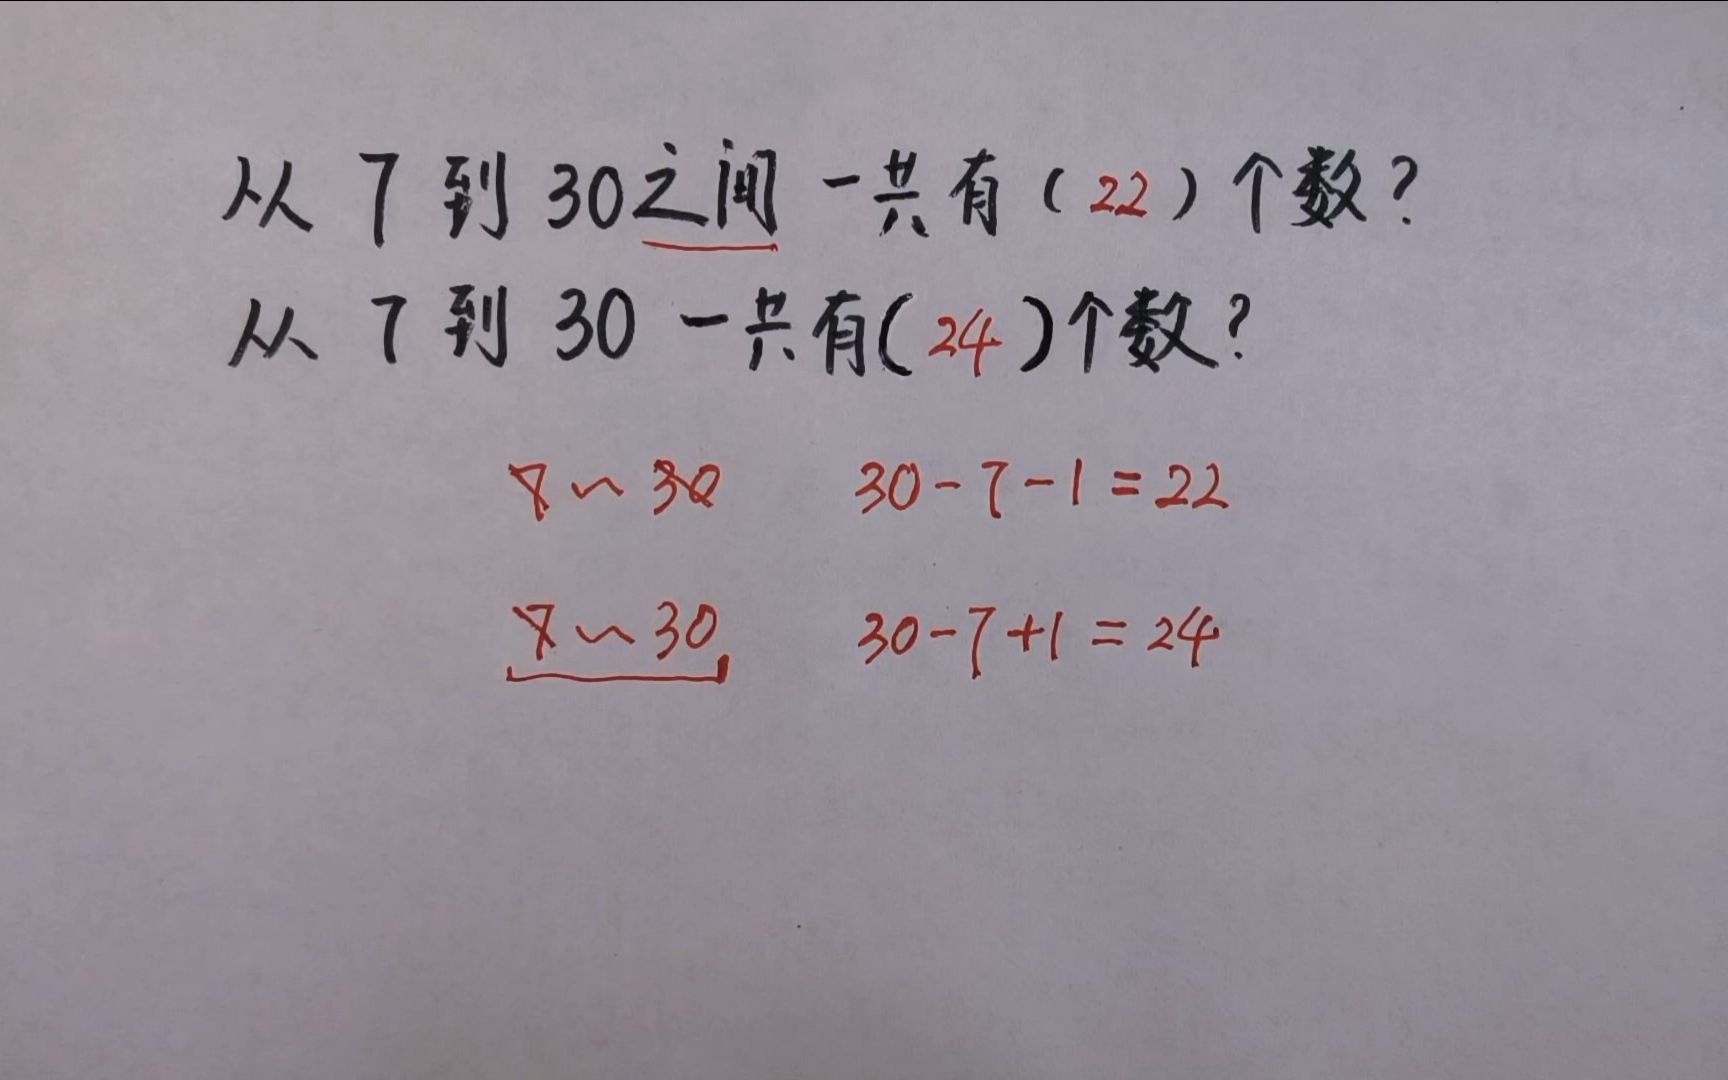 从 7 到 30之间 一共有(22)个数?
从 7 到 30 一共有(24)个数?
7~30 30-7-1=22
7~30 30-7+1=24